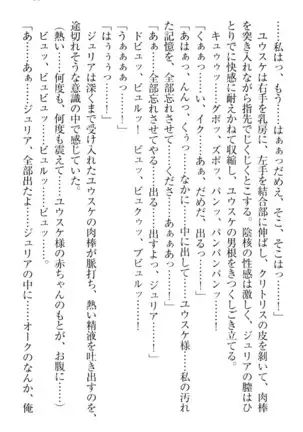 「私は、もう……はぁっだめえ、そこ、そこはっ……！」
ユウスケは右手を乳房に、左手を結合部に伸ばし、クリトリスの皮を剥いて、肉棒
を突き入れながら指先でじくじくとこする。陰核の性感は激しく、ジュリアの膣はひ
とりでに快感に耐えかねて収縮し、ユウスケの男根をきつくしごき立てる。
キュウゥッ……グボッ、ズボッ、パンッ、パンパンパンッ！
「うぁぁっ……い、イク……あぁ、だめだ、出るっ……！」
「あはぁっ、んんっ、くうっ……なかに……中に出して……ユウスケ様……私の汚れ
た記憶を、全部忘れさせて……くださ……あぁぁっ……！」
「あぁ……全部忘れさせてやる……出る……出すよっ、ジュリア……！」
ドビュッ、ビュルッ！　ビュッ、ビュクゥッ、ブビュルッ……！
「うぁぁぁぁっ……！」
「はぅぅぅっ……！」
ジュリアは深くまで受け入れたユウスケの肉棒が脈打ち、熱い精液を吐き出すのを、
途切れそうな意識の中で感じていた。
（熱い……何度も、何度も震えて……ユウスケ様の赤ちゃんのもとが、お腹に……）
ビュッ、ビュルルッ……ビュッ……。
「あぁ……あぁっ……ジュリア、全部出たよ……ジュリアの中に……オークのなんか、俺